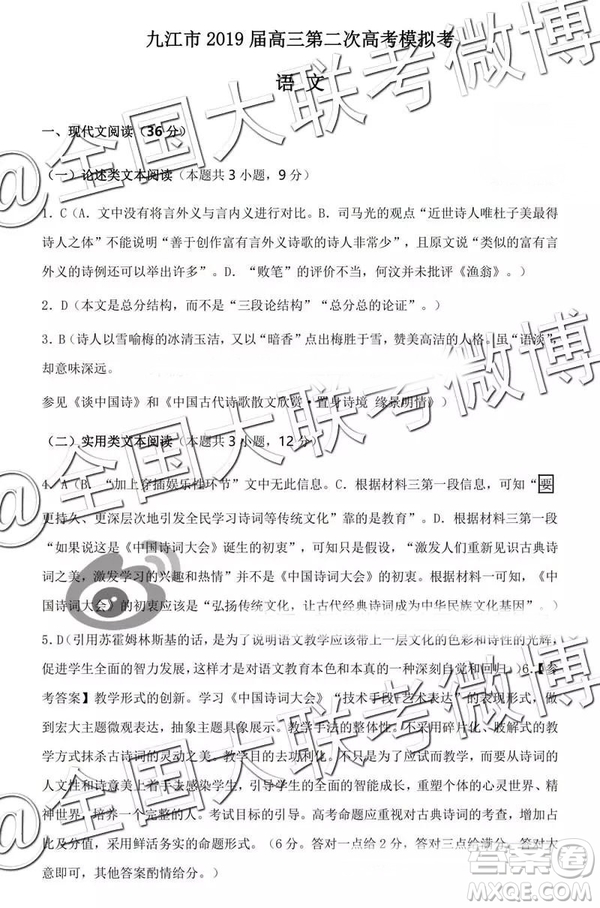 九江市 2019 届高三第二次高考模拟考
语 文
一、现代文阅读（36 分）
（一）论述类文本阅读（本题共 3 小题，9 分）
1．C（A．文中没有将言外义与言内义进行对比。B．司马光的观点“近世诗人唯杜子美最得
诗人之体”不能说明“善于创作富有言外义诗歌的诗人非常少”，且后文说“类似的富有言
外义的诗例还可以举出许多”。D．“败笔”的评价不当，何汶并未批评《渔翁》。）
2．D（本文是总分结构，而不是“三段论结构”“总分总的论证”。）
3．B（诗人以雪喻梅的冰清玉洁，又以“暗香”点出梅胜于雪，赞美高洁的人格。虽“语淡”，
却意味深远。
参见《谈中国诗》和《中国古代诗歌散文欣赏·置身诗境 缘景明情》）
（二）实用类文本阅读（本题共 3 小题，12 分）
4．A（B．“加上穿插娱乐性环节”文中无此信息。C．根据材料三第一段信息，可知“要
更持久、更深层次地引发全民学习诗词等传统文化”靠的是教育”。D．根据材料三第一段
“如果说这是《中国诗词大会》诞生的初衷”，可知“激发人们重新见识古典诗
词之美，激发学习的兴趣和热情”并不是《中国诗词大会》的初衷。根据材料一可知，《中
国诗词大会》的初衷应该是“弘扬传统文化，让古代经典诗词成为中华民族文化基因”。）
5．D（引用苏霍姆林斯基的话，是为了说明语文教学应该带上一层文化的色彩和诗性的光辉，
促进学生全面的智力发展，这是对语文教育本色和本真的一种深刻自觉和回归。）6．【参
考答案】教学形式的创新。学习《中国诗词大会》“技术手段+艺术表达”的表现形式，做
到宏大主题微观表达，抽象主题具象展示。教学手法的整体性。不采用碎片化、肢解式的教
学方式抹杀古诗词的灵动之美。教学目的去功利化。不只是为了应试而教学，而要从诗词的
人文性和诗意美上着手来感染学生，引导学生全面的智能发展，重塑学生的心灵世界和精神
世界，培养一个完整的人。考试命题的引领。高考命题应重视对古典诗词的考查，增大占
比及分值，采用鲜活务实的命题形式。（6 分。答对一点给 2 分，答对三点给满分。答到大
意即可，其他答案酌情给分。）
@全国大联考微博
@全国大联考微博
@全国大联考微博
答案圈
MXQE.COM